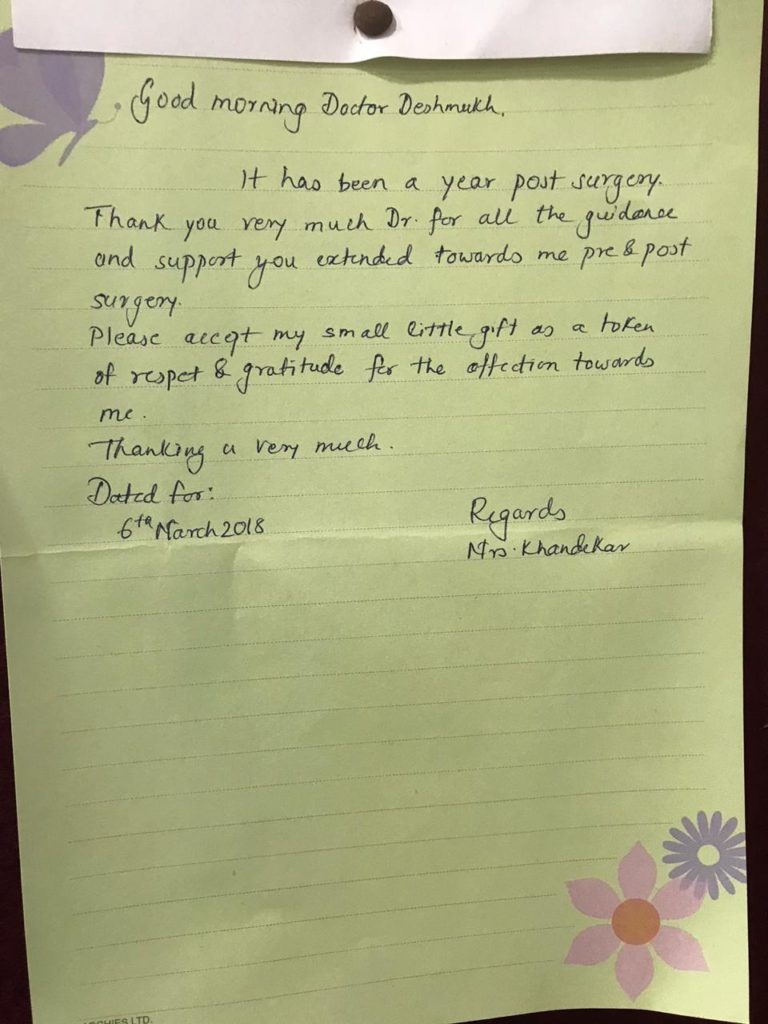 Good morning Doctor Deshmukh,
It has been a year post surgery.
Thank you very much Dr. for all the guidance
and support you extended towards me pre & post
surgery.
Please accept my small little gift as a token
of respet & gratitude for the affection towards
me.
Thanking u very much.
Dated for:
6th March 2018
Regards
Mrs. Khandekar
ARCHIES LTD.